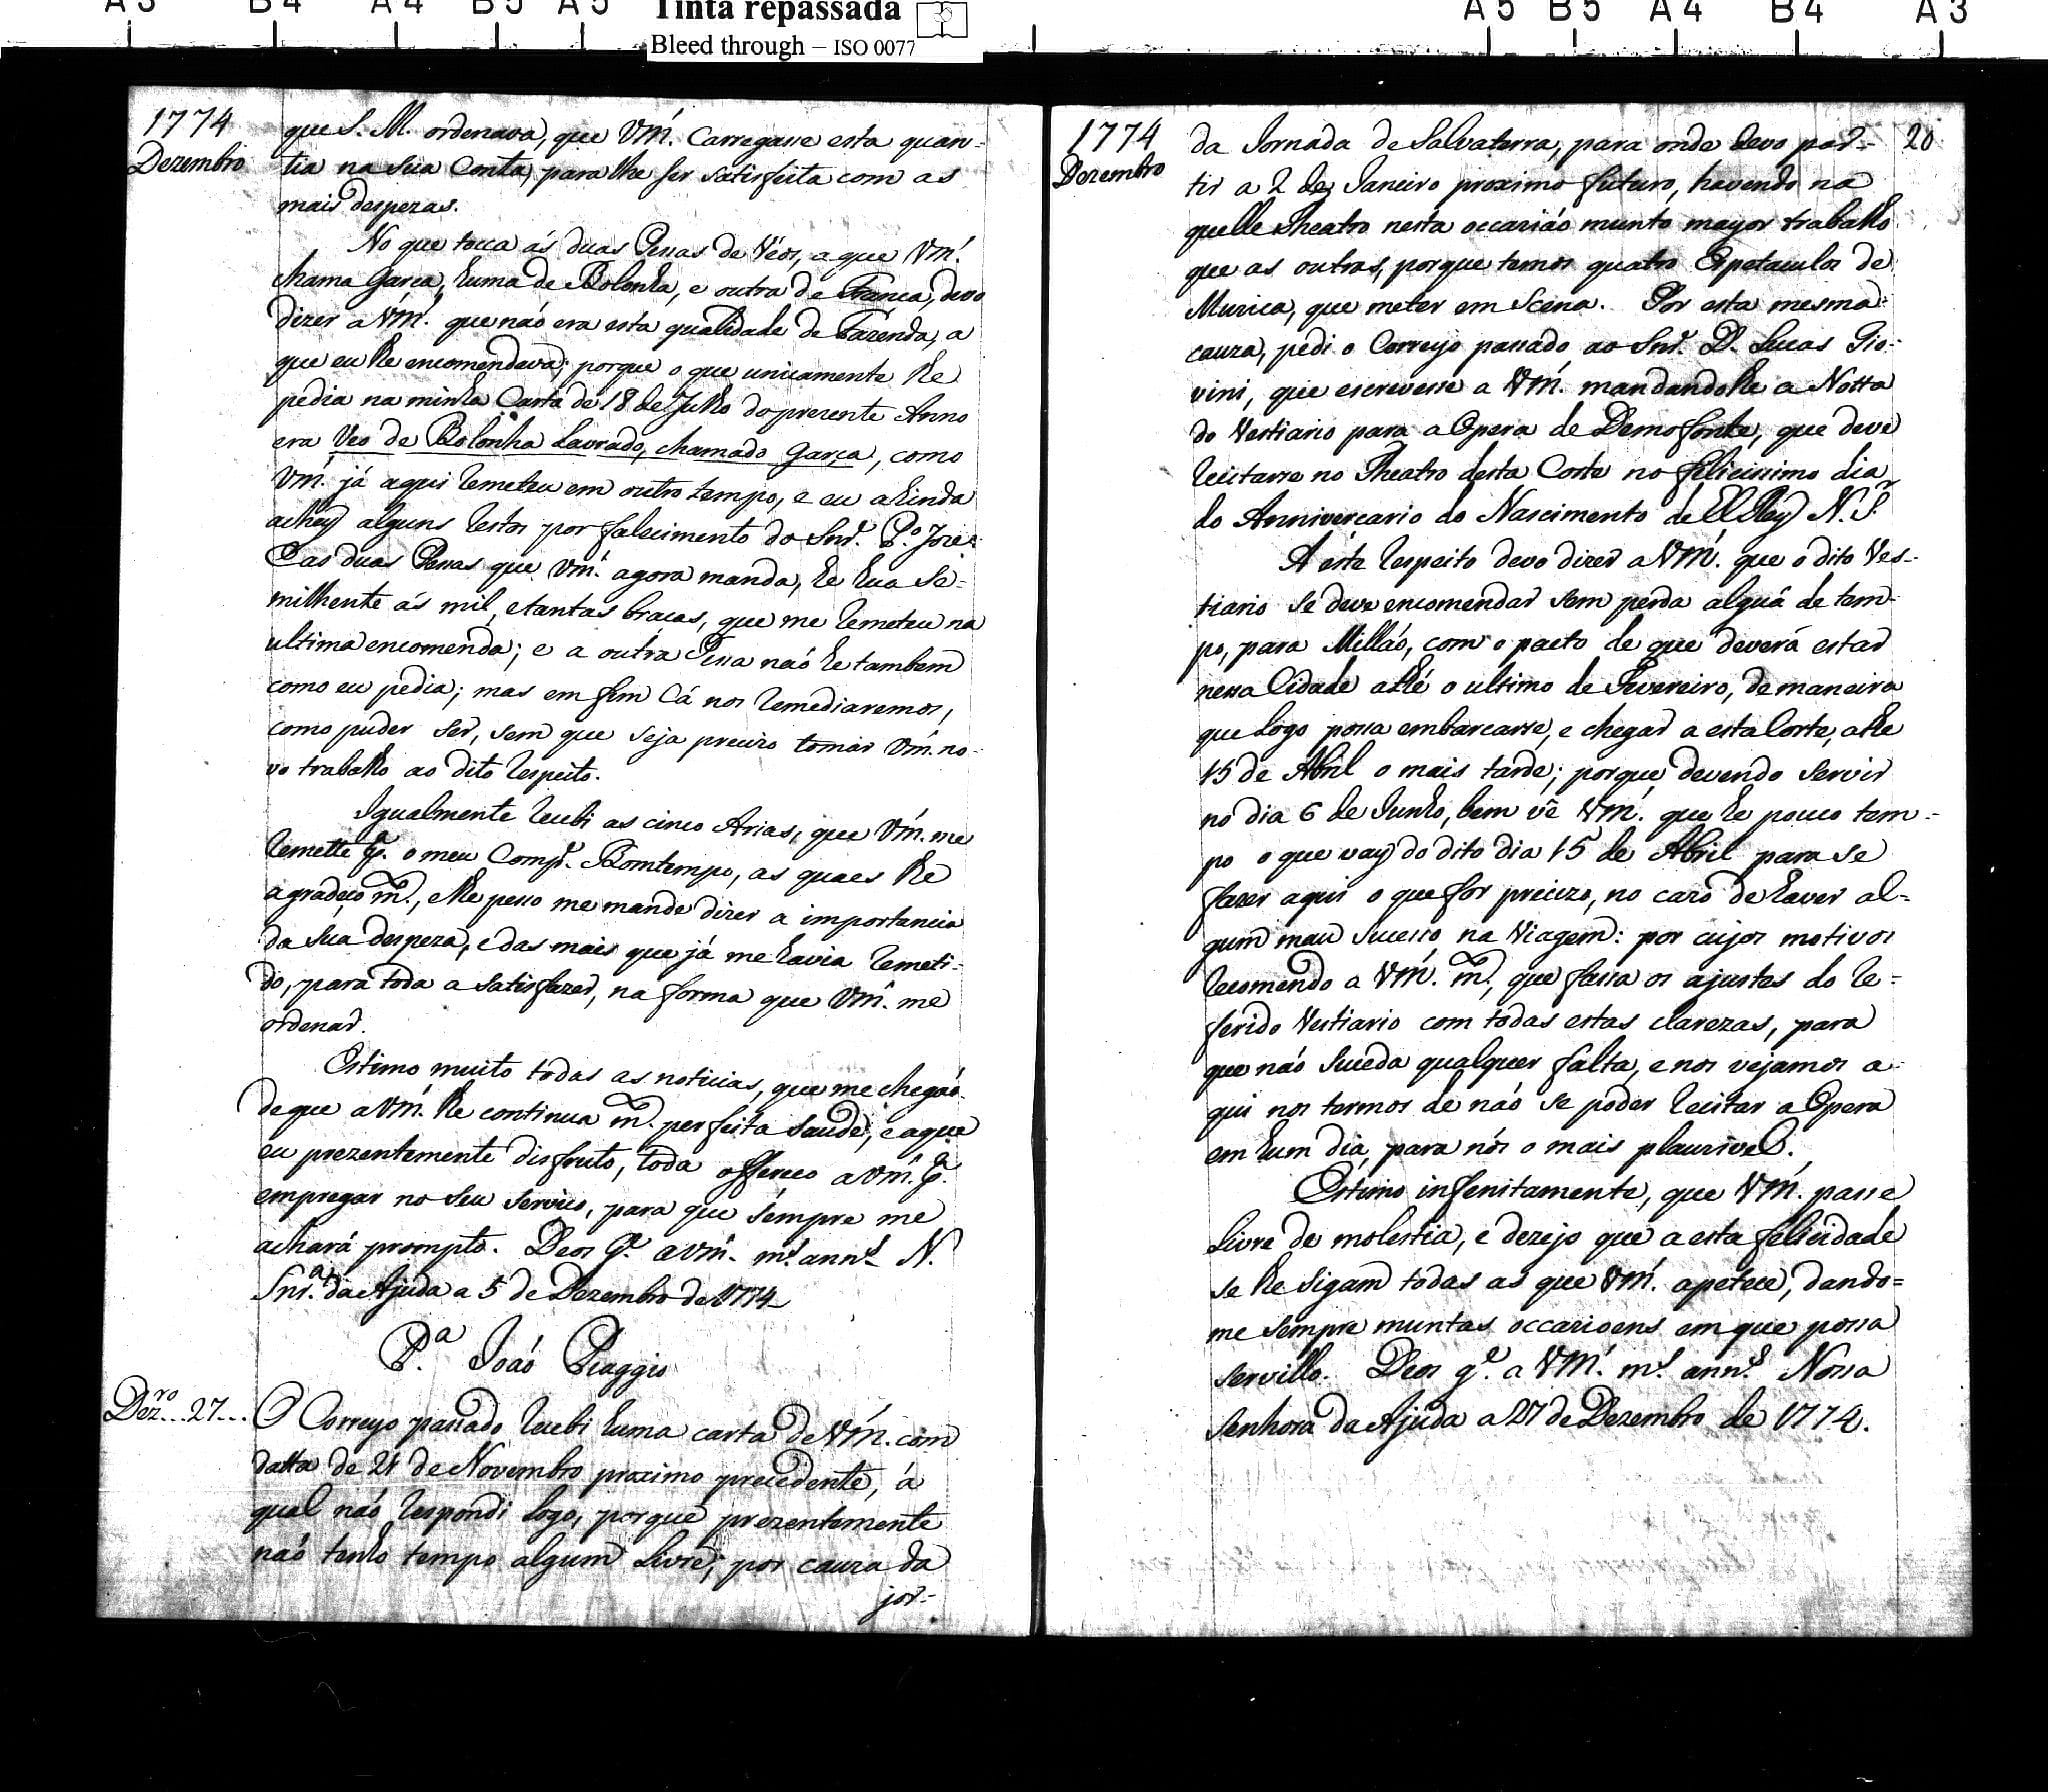 A3 B4 A4 B5 A5 Tinta repassada A5 B5 A4 B4 A3
Bleed through – ISO 0077
1774
Dezembro
que S. M. ordenava, que Vm.ce Carregasse esta quan-
tia na sua Conta, para lhe ser satisfeita com as
mais despezas.
No que toca ás duas Pessas de Véos, a que Vm.ce
chama Garça, huma de Bolonha, e outra de França, devo
dizer a Vm.ce que naó era esta qualidade de Fazenda, a
que eu lhe encomendava; porque o que unicamente lhe
pedia na minha Carta de 18 de Julho do prezente Anno
era Veo de Bolonha Lavrado, chamado Garça, como
Vm.ce já aqui remeteu em outro tempo, e eu ahinda
achey alguns restos por falecimento do Snr. P.o Joze:
E as duas Pessas que Vm.ce agora manda, he hua Se-
milhente ás mil, e tantas bracas, que me remeteu na
ultima encomenda; e a outra Pessa naó he tambem
como eu pedia; mas em fim Cá nos remediaremos,
como puder ser, sem que seja precizo tomar Vm.ce no-
vo trabalho ao dito respeito.
Igualmente recebi as cinco Arias, que Vm.ce me
remette p.a o meu Comp.e Bomtempo, as quaes lhe
agradeço m.to, e lhe pesso me mande dizer a importancia
da sua despeza, e das mais que já me havia remeti-
do, para toda a satisfazer, na forma que Vm.ce me
ordenar.
Estimo muito todas as noticias, que me chegaó
de que a Vm.ce lhe continua m.to perfeita saude; e a que
eu prezentemente disfruto, toda offereco a Vm.ce p.a
empregar no seu serviço, para que sempre me
achará prompto. Deos g.e a Vm.ce m.s ann.s N.
Snr.a da Ajuda a 5 de Dezembro de 1774
P.a Joaó Piaggio
Dez.ro..27... O Correyo passado recebi huma carta de Vm.ce com
datta de 21 de Novembro proximo precedente, á
qual naó respondi logo, porque prezentemente
naó tenho tempo algum Livre; por cauza da
jor-
1774
Dezembro
20
da Jornada de Salvaterra, para onde devo par-
tir a 2 de Janeiro proximo futuro, havendo na
quelle Theatro nesta occaziáo munto mayor trabalho
que as outras, porque temos quatro Espetaculos de
Muzica, que meter em Scena. Por esta mesma
cauza, pedi o Correyo passado ao Snr. D. Lucas Gio-
vini, que escrevesse a Vm.ce mandandolhe a Notta
do Vestiario para a Opera de Demofonte, que deve
recitarse no Theatro desta Corte no felicissimo dia
do Annivercario do Nascimento de El Rey N. S.r
A este respeito devo dizer a Vm.ce que o dito Ves-
tiario se deve encomendar sem perda alguá de tem-
po, para Milláo, com o pacto de que deverá estar
nessa Cidade athé o ultimo de Fevereiro, de maneira
que logo possa embarcarse, e chegar a esta Corte, athe
15 de Abril o mais tarde; porque devendo servir
no dia 6 de Junho, bem vê Vm.ce que he pouco tem-
po o que vay do dito dia 15 de Abril para se
fazer aqui o que for precizo, no cazo de haver al-
gum mau Sucesso na Viagem: por cujos motivos
recomendo a Vm.ce m.to, que fassa os ajustes do re-
ferido Vestiario com todas estas clarezas, para
que náo suceda qualquer falta, e nos vejamos a-
qui nos termos de náo se poder recitar a Opera
em hum dia, para nós o mais plauzivel.
Estimo infenitamente, que Vm.ce passe
Livre de molestia, e dezejo que a esta felicidade
se lhe sigam todas as que Vm.ce apetece, dando-
me sempre muntas occazioens em que possa
servillo. Deos g.e a Vm.ce m.s ann.s Nossa
Senhora da Ajuda a 27 de Dezembro de 1774.